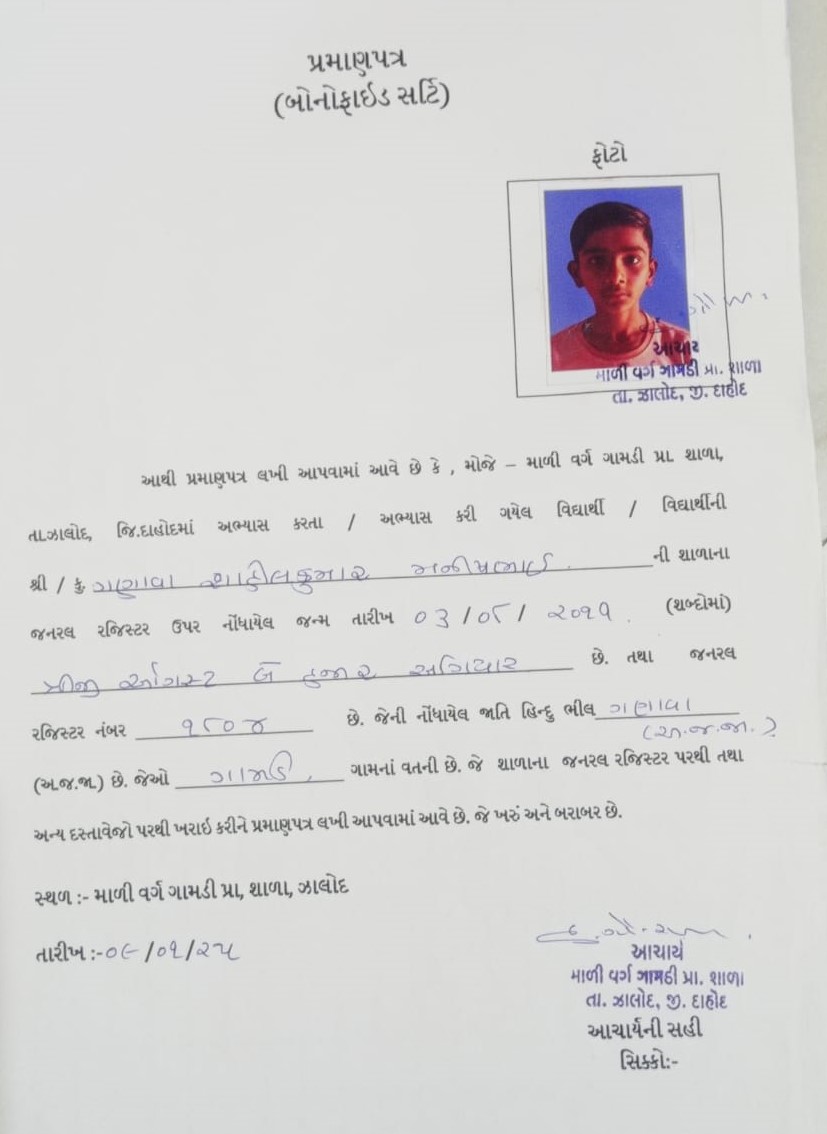 પ્રમાણપત્ર
(બોનોફાઇડ સર્ટિ)
ફોટો
આચાર્ય
માળી વર્ગ ગામડી પ્રા. શાળા
તા. ઝાલોદ, જી. દાહોદ
આથી પ્રમાણપત્ર લખી આપવામાં આવે છે કે , મોજે – માળી વર્ગ ગામડી પ્રા. શાળા,
તા.ઝાલોદ, જિ.દાહોદમાં અભ્યાસ કરતા / અભ્યાસ કરી ગયેલ વિદ્યાર્થી / વિદ્યાર્થીની
શ્રી / કુ ગણાવા શાહીલકુમાર મનીષભાઈ ની શાળાના
જનરલ રજિસ્ટર ઉપર નોંધાયેલ જન્મ તારીખ ૦૩/૦૮/૨૦૧૧ (શબ્દોમાં)
ત્રીજી ઓગસ્ટ બે હજાર અગિયાર છે. તથા જનરલ
રજિસ્ટર નંબર ૧૮૦૪ છે. જેની નોંધાયેલ જાતિ હિન્દુ ભીલ ગણાવા
(અ.જ.જા.)
(અ.જ.જા.) છે. જેઓ ગામડી ગામનાં વતની છે. જે શાળાના જનરલ રજિસ્ટર પરથી તથા
અન્ય દસ્તાવેજો પરથી ખરાઇ કરીને પ્રમાણપત્ર લખી આપવામાં આવે છે. જે ખરું અને બરાબર છે.
સ્થળ :- માળી વર્ગ ગામડી પ્રા, શાળા, ઝાલોદ
તારીખ :-૦૯/૦૧/૨૫
આચાર્ય
માળી વર્ગ ગામડી પ્રા. શાળા
તા. ઝાલોદ, જી. દાહોદ
આચાર્યની સહી
સિક્કો:-